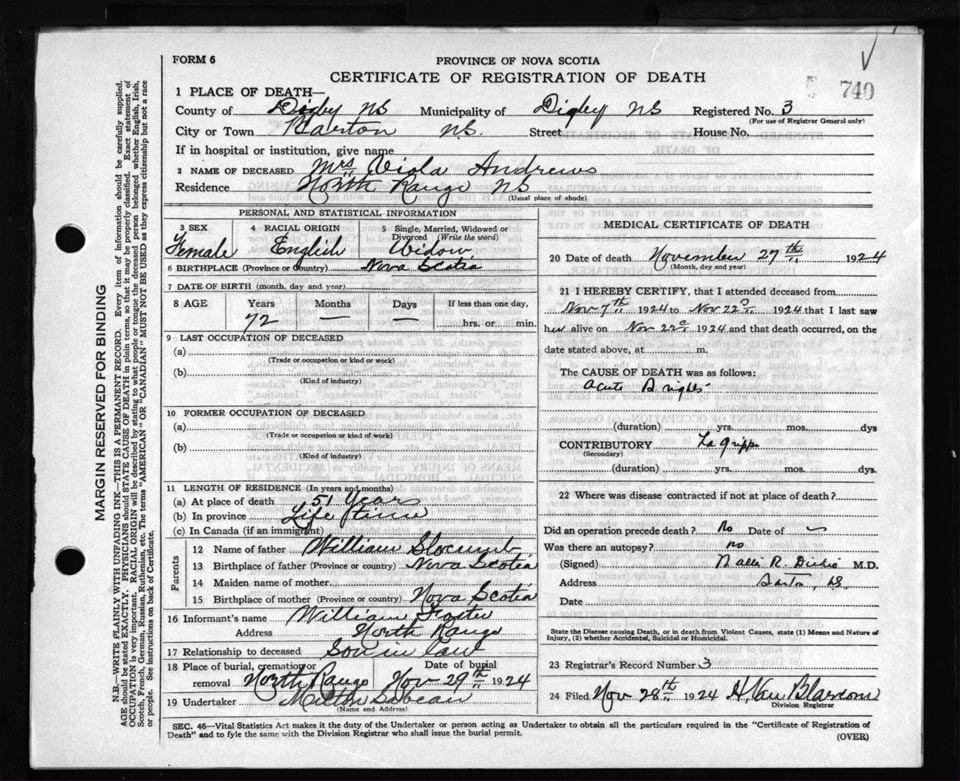 FORM 6
PROVINCE OF NOVA SCOTIA
CERTIFICATE OF REGISTRATION OF DEATH
740
1 PLACE OF DEATH—
County of Digby NS Municipality of Digby NS Registered No. 3
(For use of Registrar General only)
City or Town Barton NS. Street House No.
If in hospital or institution, give name
2 NAME OF DECEASED Mrs Viola Andrews
Residence North Range NS
(Usual place of abode)
PERSONAL AND STATISTICAL INFORMATION
3 SEX Female
4 RACIAL ORIGIN English
5 Single, Married, Widowed or Divorced (Write the word) Widow
6 BIRTHPLACE (Province or Country) Nova Scotia
7 DATE OF BIRTH (month, day and year)
8 AGE Years 72 Months — Days — If less than one day, hrs. or min.
9 LAST OCCUPATION OF DECEASED
(a)
(Trade or occupation or kind or work)
(b)
(Kind of industry)
10 FORMER OCCUPATION OF DECEASED
(a)
(Trade or occupation or kind of work)
(b)
(Kind of industry)
11 LENGTH OF RESIDENCE (In years and months)
(a) At place of death 51 Years
(b) In province Life time
(c) In Canada (if an immigrant)
Parents
12 Name of father William
13 Birthplace of father (Province or country) Nova Scotia
14 Maiden name of mother
15 Birthplace of mother (Province or country) Nova Scotia
16 Informant's name William Foster
Address North Range
17 Relationship to deceased Son in law
18 Place of burial, cremation or removal North Range Date of burial Nov 29th 1924
19 Undertaker Milton Sabean
(Name and Address)
MEDICAL CERTIFICATE OF DEATH
20 Date of death November 27th 1924
(Month, day and year)
21 I HEREBY CERTIFY, that I attended deceased from
Nov 7th 1924 to Nov 22 1924 that I last saw
her alive on Nov 22 1924 and that death occurred, on the
date stated above, at m.
The CAUSE OF DEATH was as follows:
Acute Brights
(duration) yrs. mos. dys
CONTRIBUTORY La Grippe
(Secondary)
(duration) yrs. mos. dys.
22 Where was disease contracted if not at place of death?
Did an operation precede death? No Date of
Was there an autopsy? no
(Signed) R. M.D.
Address Barton NS
Date
State the Disease causing Death, or in death from Violent Causes, state (1) Means and Nature of
Injury, (2) whether Accidental, Suicidal or Homicidal.
23 Registrar's Record Number 3
24 Filed Nov 28th 1924 H. Van Blarcom
Division Registrar
SEC. 46—Vital Statistics Act makes it the duty of the Undertaker or person acting as Undertaker to obtain all the particulars required in the "Certificate of Registration of
Death" and to fyle the same with the Division Registrar who shall issue the burial permit.
(OVER)
MARGIN RESERVED FOR BINDING
N.B.—WRITE PLAINLY WITH UNFADING INK—THIS IS A PERMANENT RECORD. Every item of information should be carefully supplied.
AGE should be stated EXACTLY. PHYSICIANS should STATE CAUSE OF DEATH in plain terms, so that it may be properly classified. Exact statement of
OCCUPATION is very important. RACIAL ORIGIN will be described by stating to what people or tongue the deceased person belonged whether English, Irish,
Scotch, French, German, Russian, Ruthenian, etc. The terms "AMERICAN" OR "CANADIAN" MUST NOT BE USED as they express citizenship but not a race
or people. See instructions on back of Certificate.